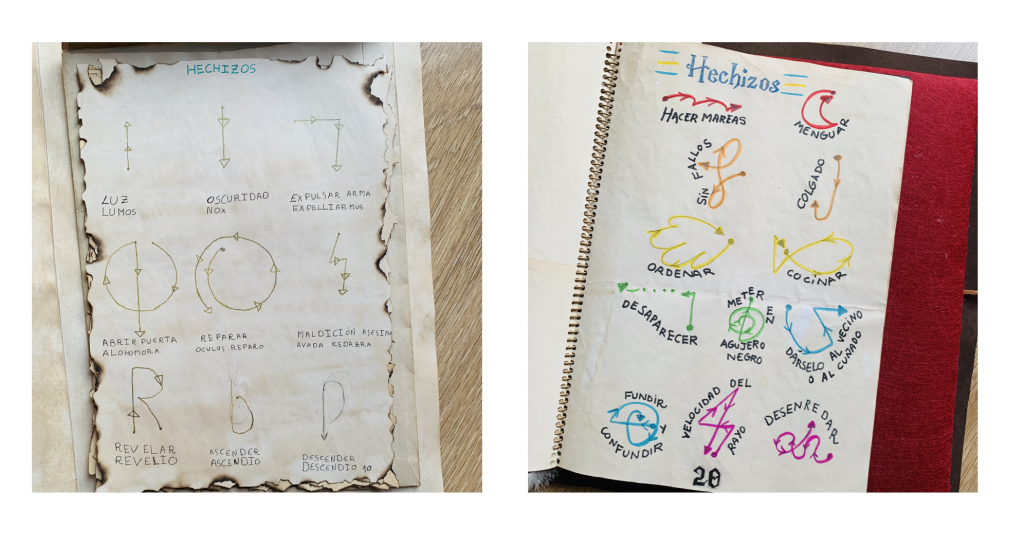 HECHIZOS
LUZ
LUMOS
OSCURIDAD
NOX
EXPULSAR ARMA
EXPELLIARMUS
ABRIR PUERTA
ALOHOMORA
REPARAR
OCULUS REPARO
MALDICIÓN ASESINA
AVADA KEDABRA
REVELAR
REVELIO
ASCENDER
ASCENDIO
DESCENDER
DESCENDIO 10
Hechizos
HACER MAREAS
MENGUAR
SIN FALLOS
COLGADO
ORDENAR
COCINAR
DESAPARECER
METER EN
AGUJERO
NEGRO
DARSELO AL VECINO
O AL CUÑADO
FUNDIR
Y
CONFUNDIR
VELOCIDAD DEL
RAYO
DESENREDAR
20